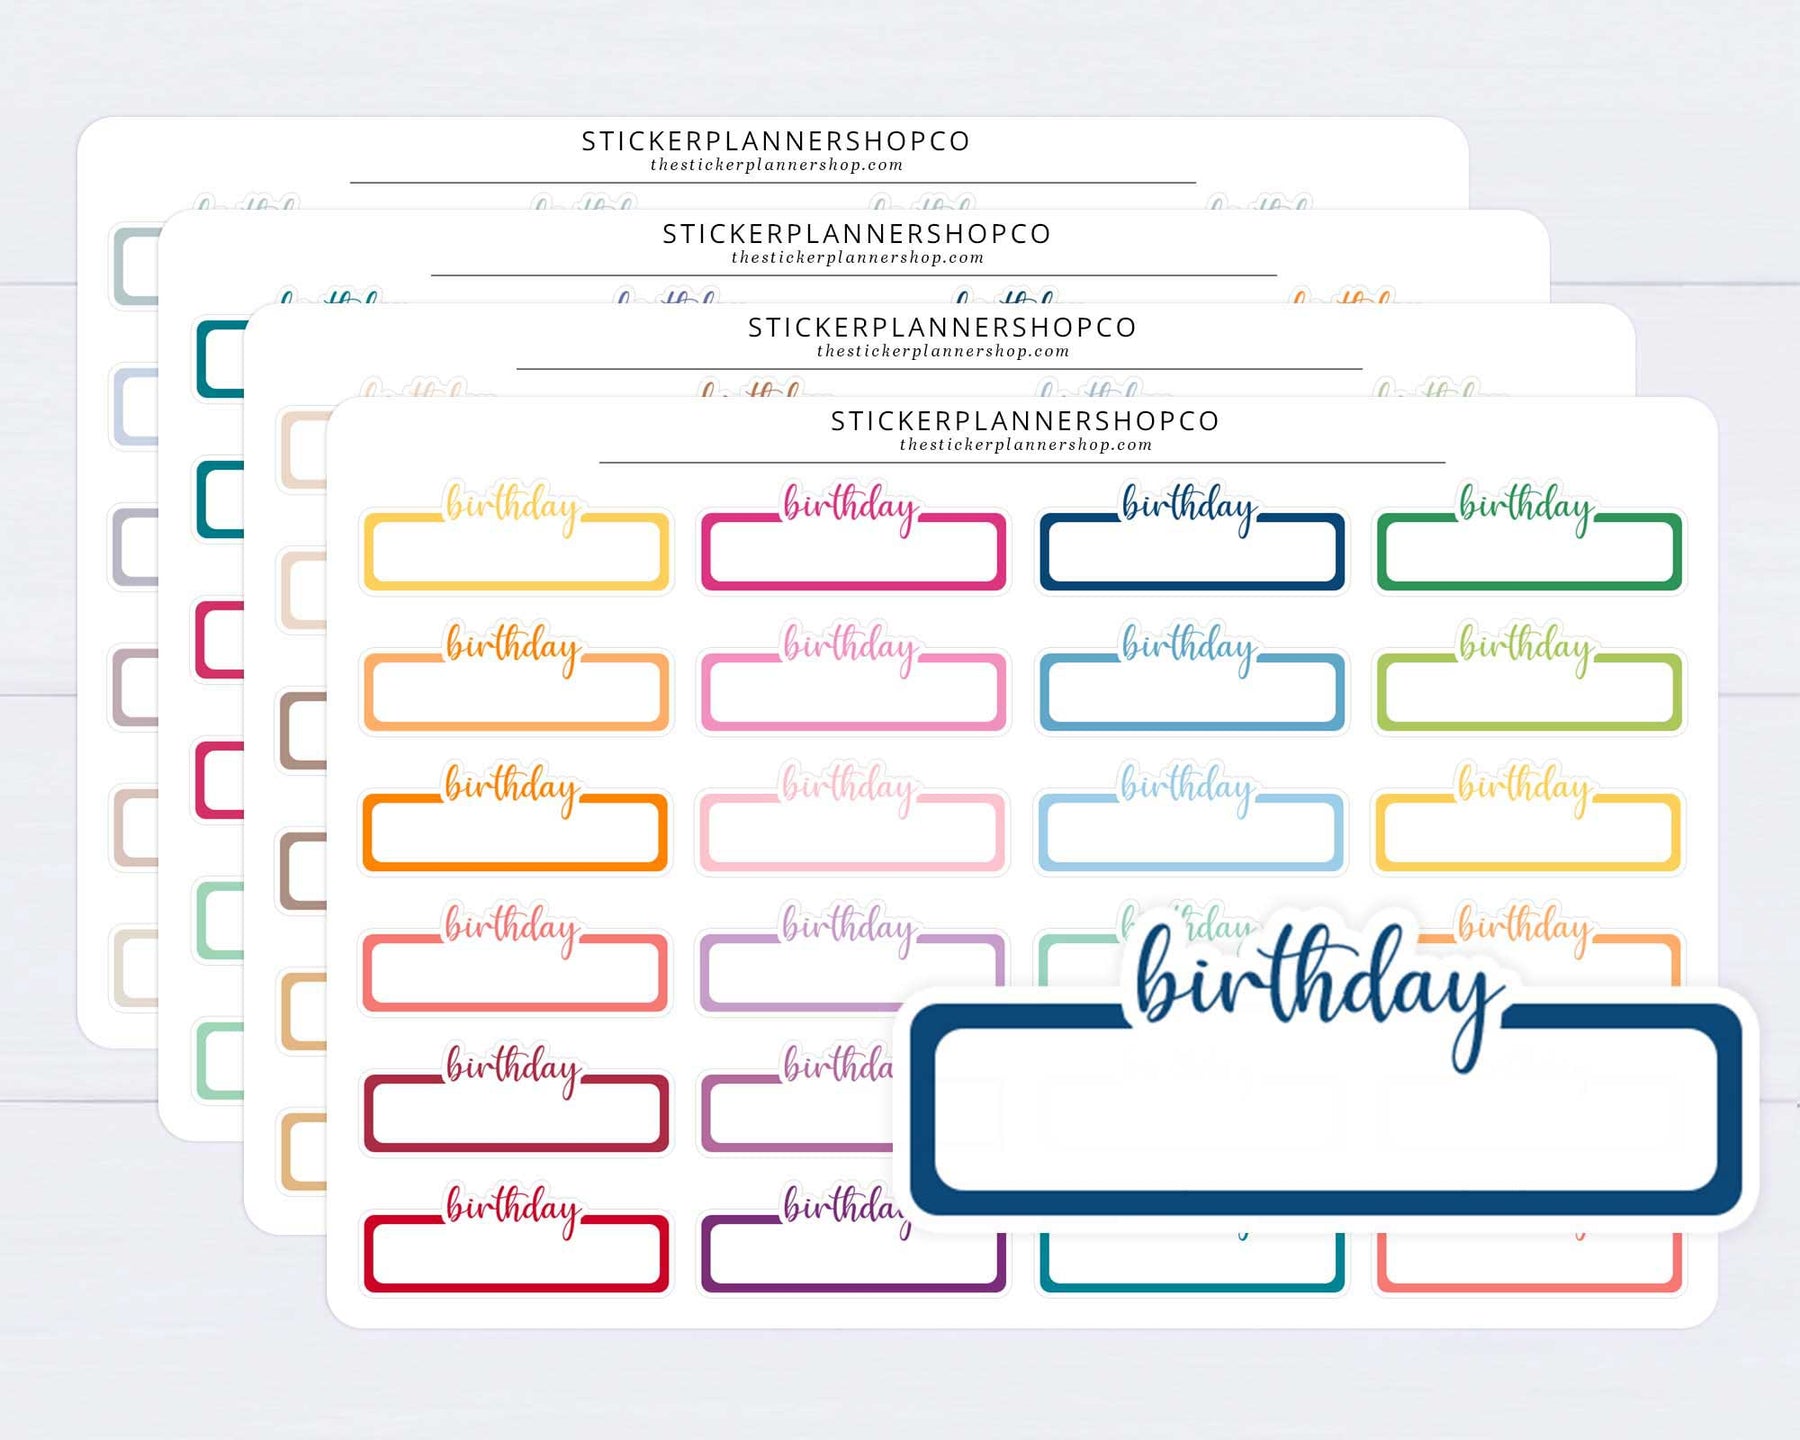 STICKERPLANNERSHOPCO
thestickerplannershop.com
STICKERPLANNERSHOPCO
thestickerplannershop.com
STICKERPLANNERSHOPCO
thestickerplannershop.com
STICKERPLANNERSHOPCO
thestickerplannershop.com
birthday birthday birthday birthday
birthday birthday birthday birthday
birthday birthday birthday birthday
birthday birthday birthday birthday
birthday
birthday birthday
birthday birthday